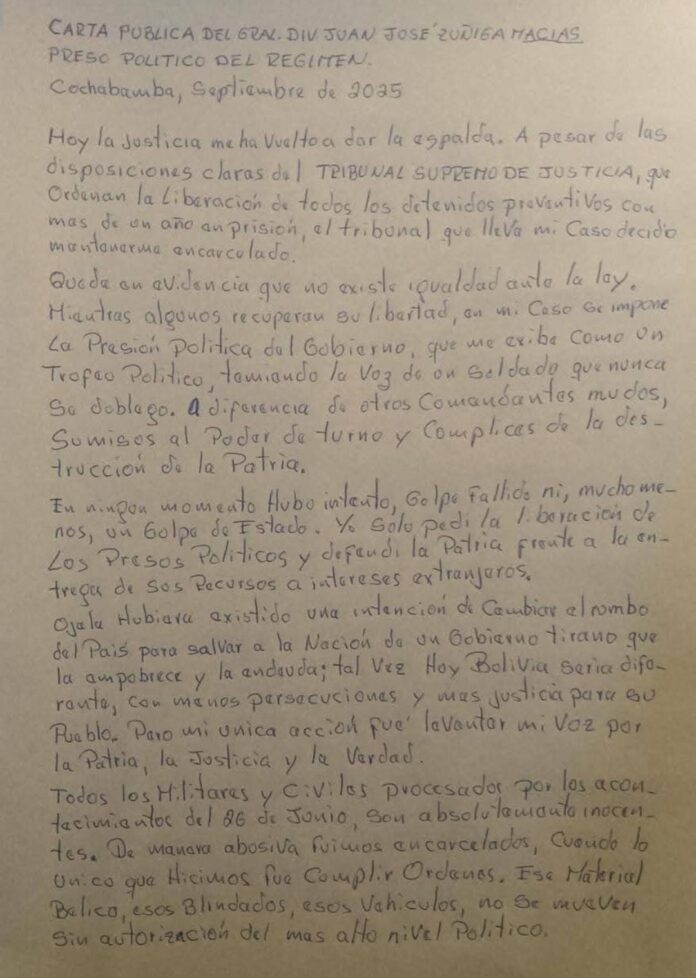 CARTA PUBLICA DEL GRAL. DIV JUAN JOSÉ ZUÑIGA MACIAS
PRESO POLITICO DEL REGIMEN.
Cochabamba, Septiembre de 2025
Hoy la justicia me ha vuelto a dar la espalda. A pesar de las
disposiciones claras del TRIBUNAL SUPREMO DE JUSTICIA, que
Ordenan la Liberación de todos los detenidos preventivos con
mas de un año en prisión, el tribunal que lleva mi Caso decidio
mantenerme encarcelado.
Queda en evidencia que no existe igualdad ante la ley.
Mientras algunos recuperan su libertad, en mi Caso se impone
La Presión Política del Gobierno, que me exibe Como un
Trofeo Politico, temiendo la Voz de un Soldado que nunca
Se doblego. A diferencia de otros Comandantes mudos,
Sumisos al Poder de turno y Complices de la des-
trucción de la Patria.
En ningun momento Hubo intento, Golpe Fallido ni, mucho me-
nos, un Golpe de Estado. Yo Solo pedi la liberación de
Los Presos Politicos y defendi la Patria frente a la en-
trega de sus Recursos a intereses extranjeros.
Ojala Hubiera existido una intención de Cambiar el rumbo
del País para salvar a la Nación de un Gobierno tirano que
la empobrece y la endeuda; tal Vez Hoy Bolivia seria dife-
rente, con menos persecuciones y mas justicia para su
Pueblo. Pero mi unica acción fue levantar mi Voz por
la Patria, la Justicia y la Verdad.
Todos los Militares y Civiles procesados por los acon-
tecimientos del 26 de Junio, son absolutamente inocen-
tes. De manera abusiva fuimos encarcelados, Cuando lo
Unico que Hicimos fue Complir Ordenes. Ese Material
Belico, esos Blindados, esos Vehiculos, no se mueven
Sin autorización del mas alto nivel Político.